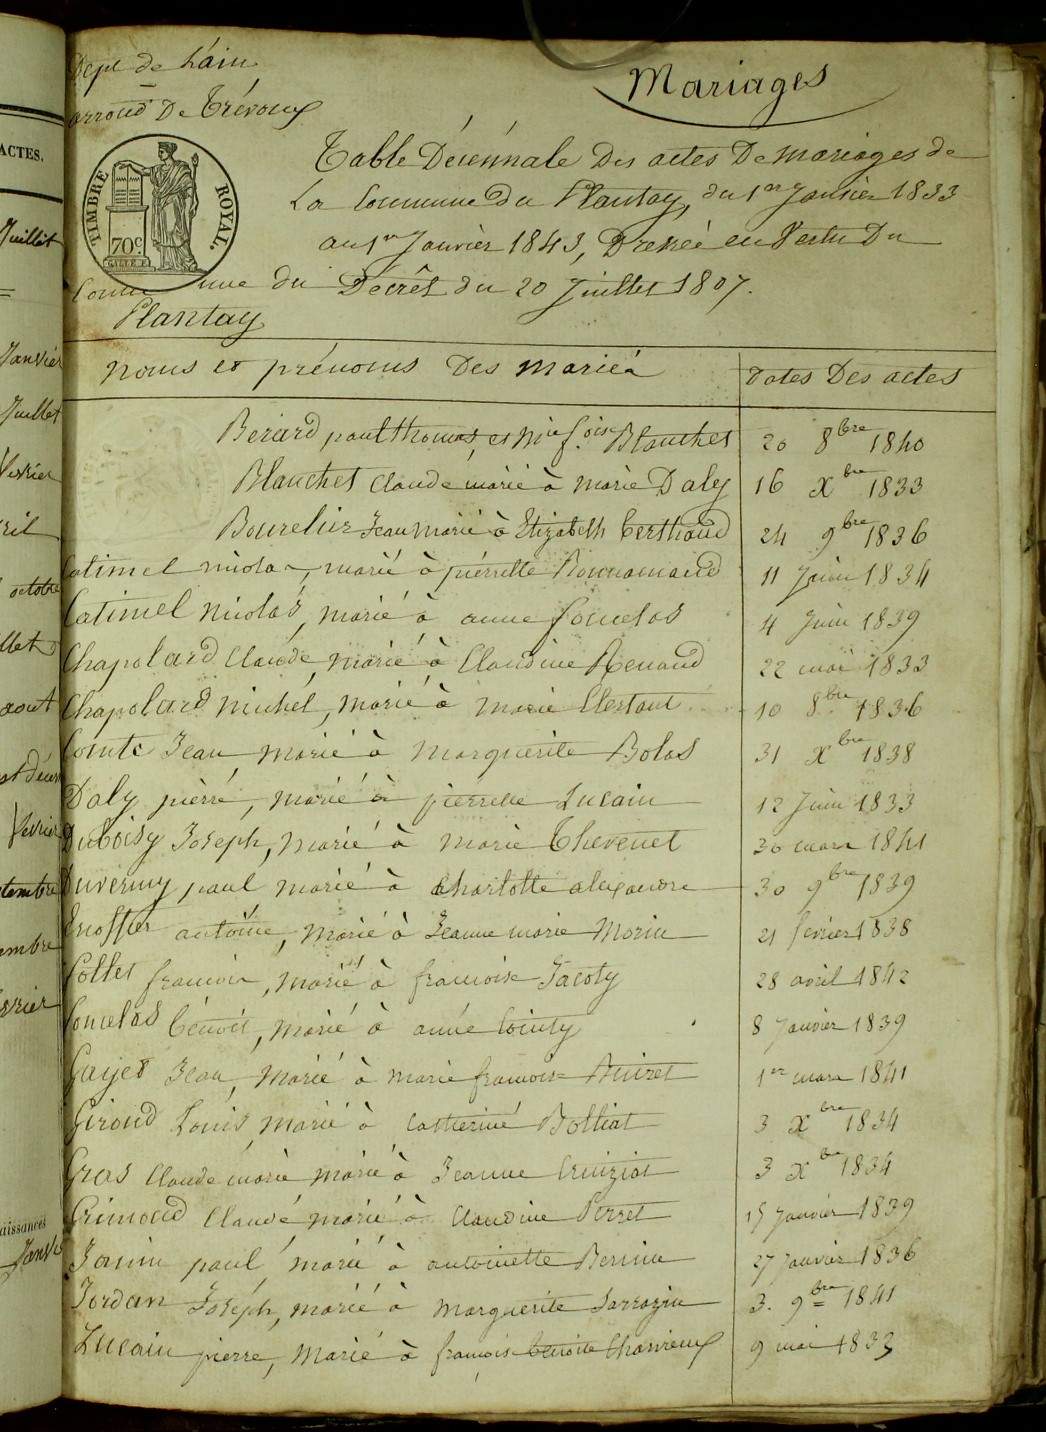 Dept de L'ain
arrond De Trévoux
Mariages
ACTES.
TIMBRE ROYAL.
70c
Table Décénnale Des actes De mariages de
La Commune du Plantay, du 1er Janvier 1833
au 1er Janvier 1843, Dressée en Vertu Du
Commune du Décrêt du 20 Juillet 1807.
Plantay
noms et prénoms Des mariés
Dates Des actes
Berard paul thomas, et Mie foise Blanchet 20 8bre 1840
Blanchet Claude marié à marie Daly 16 Xbre 1833
Bourelier Jean marié à Elizabeth Berthaud 24 9bre 1836
Catimel nicolas, marié à pierrette 11 Juin 1834
Catimel nicolas, marié à anne foncelas 4 Juin 1839
Chapolard Claude, marié à Claudine Renaud 22 mai 1833
Chapolard michel, marié à marie 10 8bre 1836
Comte Jean marié à marguerite Bolas 31 Xbre 1838
Daly pierre, marié à pierrette Lucain 12 Juin 1833
Duboisy Joseph, marié à marie Thevenet 30 mars 1841
Duvernay paul marié à charlotte alexandre 30 9bre 1839
antoine, marié à Jeanne marie Morin 21 fevrier 1838
follet francois, marié à francoise Jacoty 28 avril 1842
foncelas benoit, marié à anne 8 Janvier 1839
Gayet Jean, marié à marie francoise 1er mars 1841
Giroud Louis, marié à Catherine Bolliat 3 Xbre 1834
Gras Claude marie marié à Jeanne Cruiziat 3 Xbre 1834
Grimaud Claude, marié à Claudine Perret 15 Janvier 1839
Janin paul, marié à antoinette Bernin 27 Janvier 1836
Jordan Joseph, marié à marguerite Sarrazin 3. 9bre 1841
Lucain pierre, marié à francoise benoite Chanrieux 9 mai 1833
Juillet
Janvier
Juillet
octobre
aout
aissances